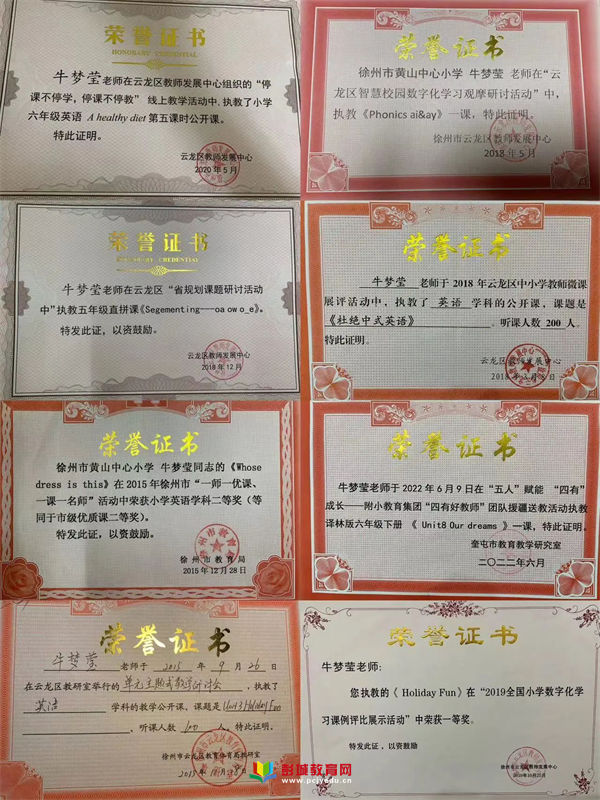 荣誉证书
HONORARY CREDENTIAL
牛梦莹老师在云龙区教师发展中心组织的“停
课不停学，停课不停教”线上教学活动中，执教了小学
六年级英语 A healthy diet 第五课时公开课。
特此证明。
云龙区教师发展中心
2020年5月
荣誉证书
徐州市黄山中心小学 牛梦莹 老师在“云
龙区智慧校园数字化学习观摩研讨活动”中，
执教《Phonics ai&ay》一课，特此证明。
徐州市云龙区教师发展中心
2018年5月
荣誉证书
HONORARY CREDENTIAL
牛梦莹老师在云龙区“省规划课题研讨活动
中”执教五年级直拼课《Segementing---oa ow o_e》。
特发此证，以资鼓励。
云龙区教师发展中心
2018年12月
荣誉证书
牛梦莹 老师于 2018 年云龙区中小学教师微课
展评活动中，执教了 英语 学科的公开课，课题是
《杜绝中式英语》。听课人数 200 人。
特此证明。
云龙区教师发展中心
2018年3月8日
荣誉证书
徐州市黄山中心小学 牛梦莹同志的《Whose
dress is this》在 2015 年徐州市“一师一优课、
一课一名师”活动中荣获小学英语学科二等奖（等
同于市级优质课二等奖）。
特发此证，以资鼓励。
徐州市教育局
2015年12月28日
荣誉证书
牛梦莹老师于 2022 年 6 月 9 日在“五人”赋能 “四有”
成长——附小教育集团“四有好教师”团队援疆送教活动执教
译林版六年级下册 《 Unit8 Our dreams 》一课，特此证明。
奎屯市教育教学研究室
二〇二二年六月
荣誉证书
牛梦莹 老师于 2015 年 9 月 26 日
在云龙区教研室举行的 单元主题式教学研讨会，执教了
英语 学科的教学公开课、课题是 Unit3 Holiday Fun
、听课人数 100 人，特此证明。
徐州市云龙区教育体育局教研室
荣誉证书
牛梦莹老师：
您执教的《 Holiday Fun》在“2019全国小学数字化学
习课例评比展示活动”中荣获一等奖。
特发此证，以资鼓励
徐州市云龙区教师发展中心
彭城教育网
www.pcjyedu.cn